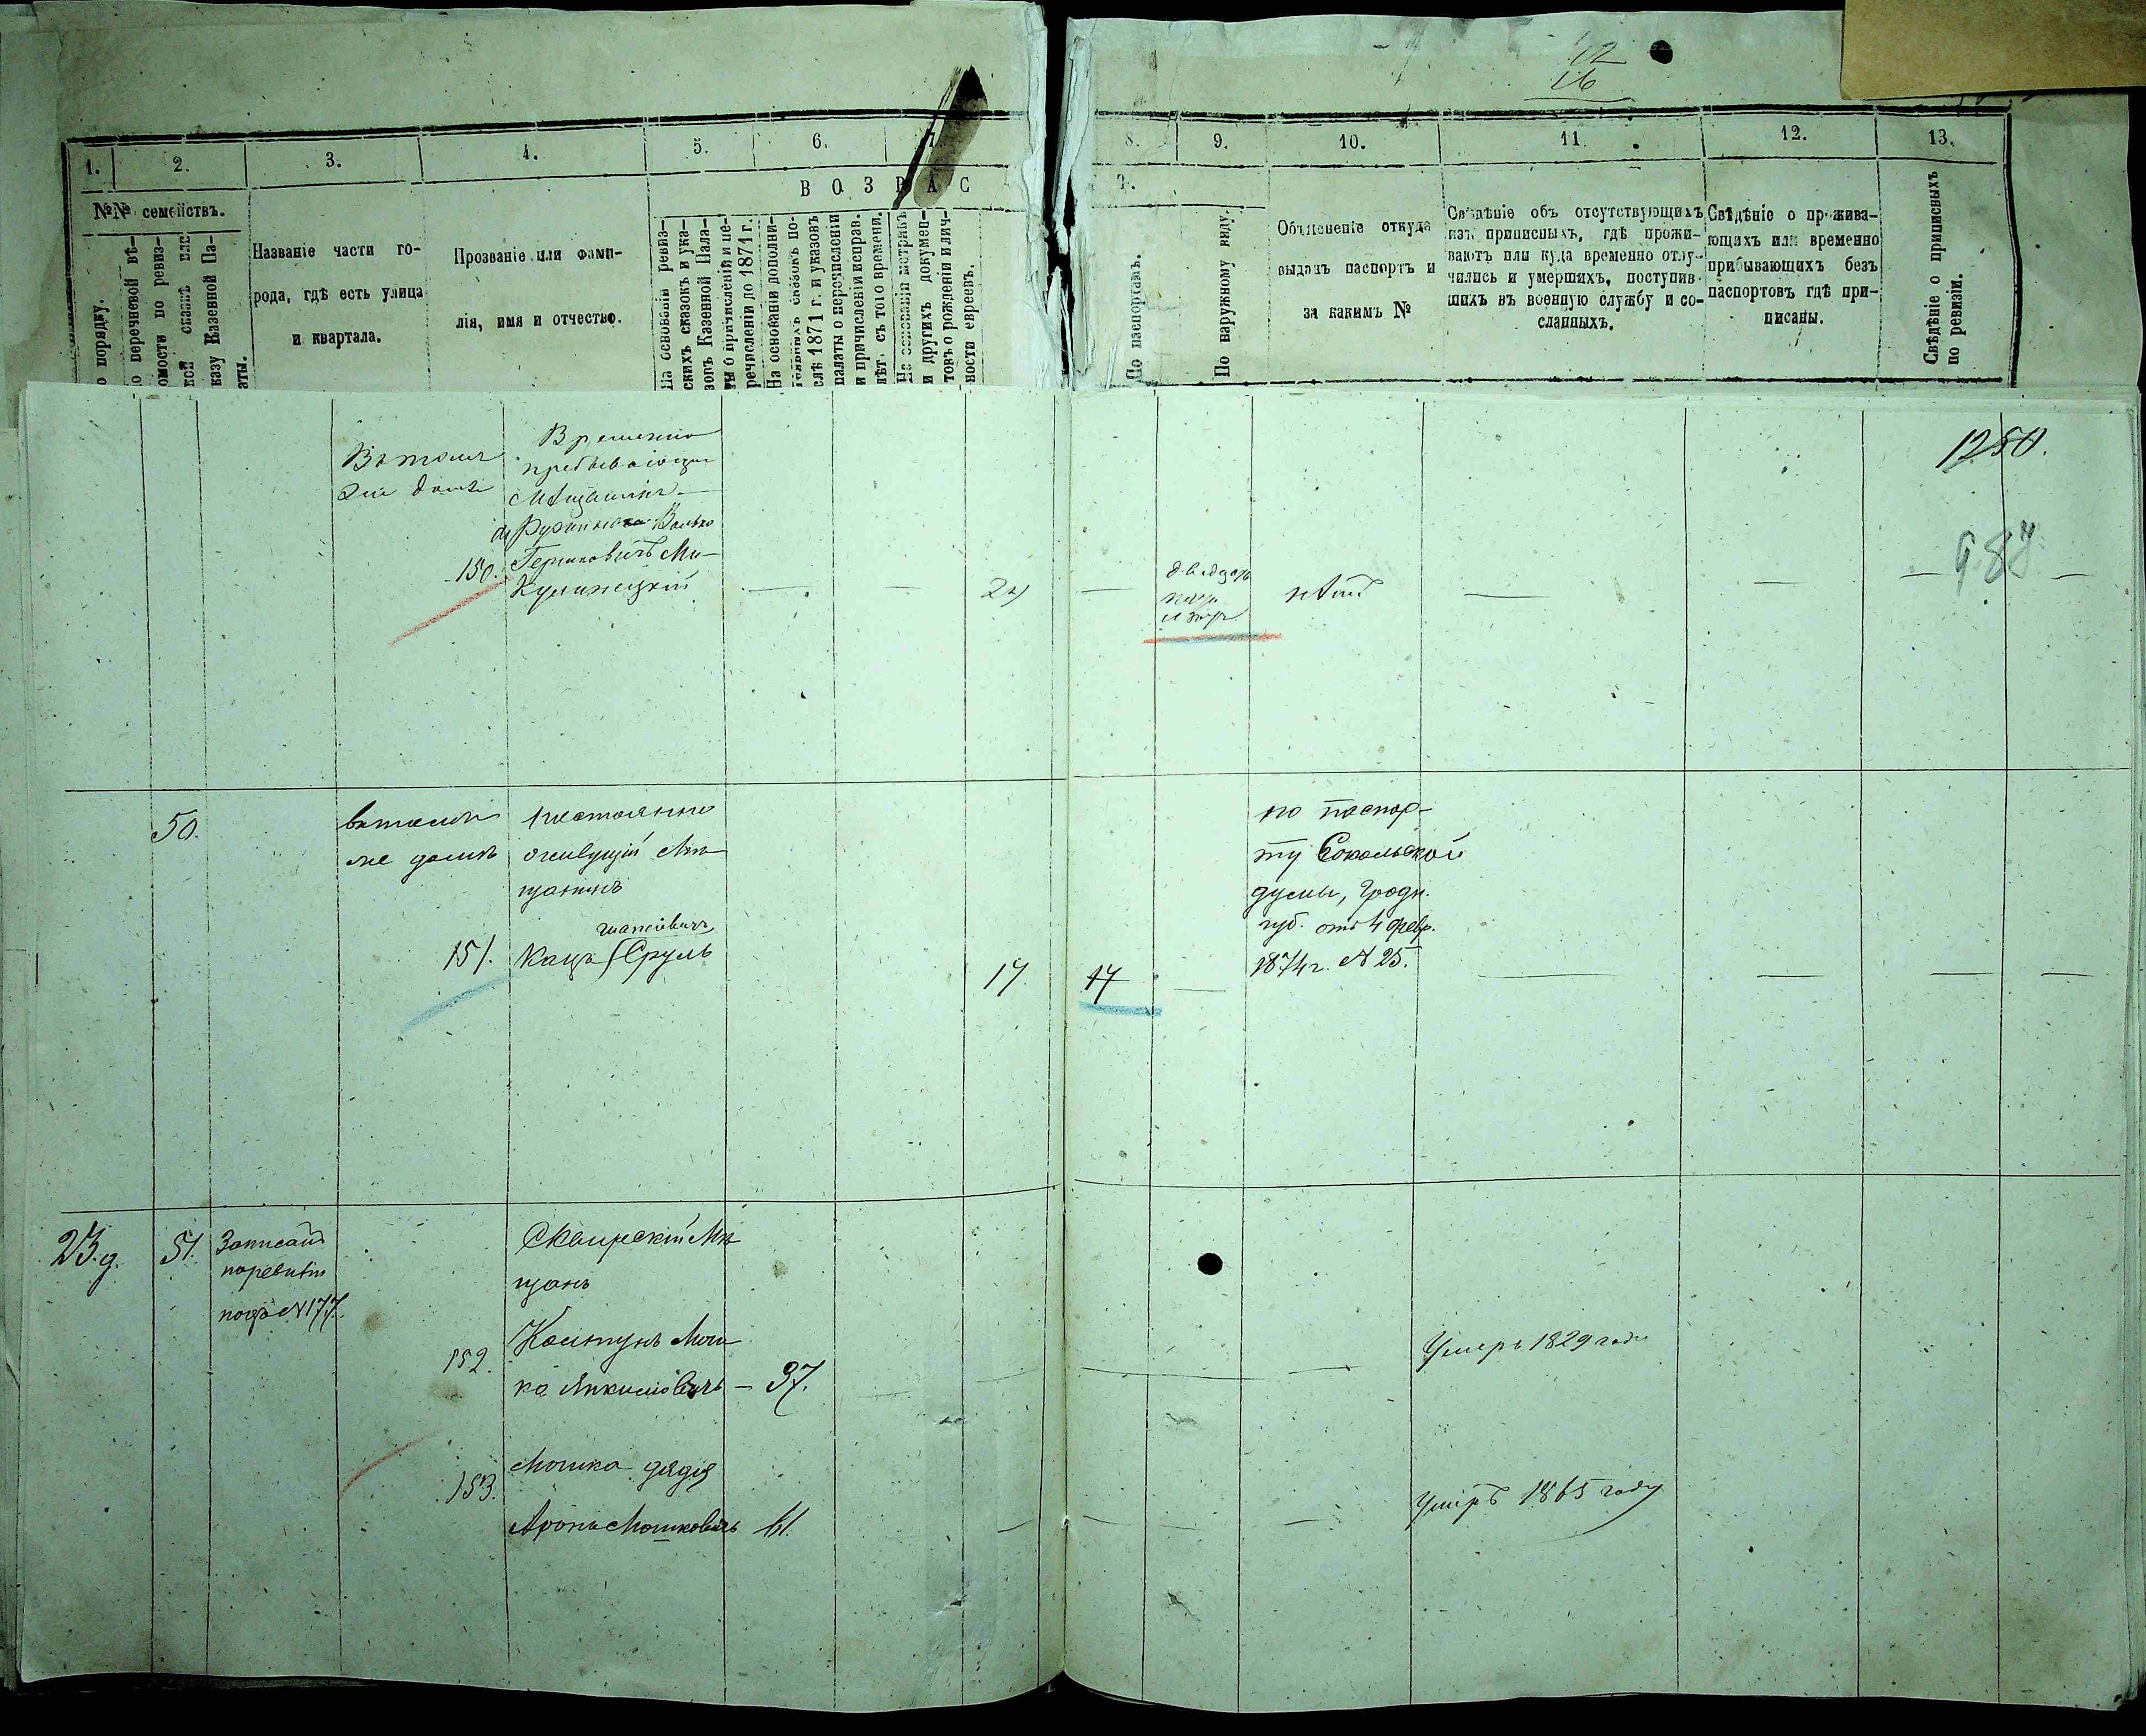 12
16
1. 2. 3. 4. 5. 6. 7. 8. 9. 10. 11. 12. 13.
ВОЗРАС
Т.
№№ семействъ.
о порядку.
о перечневой вѣ-
омости по ревиз-
ской сказкѣ или
казу Казенной Па-
латы.
Названіе части го-
рода, гдѣ есть улица
и квартала.
Прозваніе или фами-
лія, имя и отчество.
На основаніи ревиз-
скихъ сказокъ и ука-
зовъ Казенной Пала-
ты о причисленіи и пе-
речисленіи до 1871 г.
На основаніи дополни-
тельныхъ сказокъ по-
слѣ 1871 г. и указовъ
палаты о перечисленіи
и причисленіи исправ.
лѣтъ съ того времени.
На основаніи метрикъ
и другихъ докумен-
товъ о рожденіи и лич-
ности евреевъ.
По паспортамъ.
По наружному виду.
Объясненіе откуда
выданъ паспортъ и
за какимъ №
Свѣдѣніе объ отсутствующихъ
изъ приписныхъ, гдѣ прожи-
ваютъ или куда временно отлу-
чились и умершихъ, поступив-
шихъ въ военную службу и со-
сланныхъ.
Свѣдѣніе о прожива-
ющихъ или временно
прибывающихъ безъ
паспортовъ гдѣ при-
писаны.
Свѣдѣніе о приписныхъ
по ревизіи.
1250.
Въ томъ
же домѣ
Временно
пребывающій
Мѣщанинъ
Волько
150. Гершковичъ Ми-
кулинецкій
двадцать
нѣтъ
50.
въ томъ
же домѣ
постоянно
живущій Мѣ-
щанинъ
151. Кацъ Сруль
17. 17
по паспор-
ту Сокольской
думы, Гродн.
губ. отъ 4 февр.
1874 г. № 25.
23.д. 51.
Записанъ
по ревизіи
подъ № 177.
Сквирскій Мѣ-
щанъ
152. Колтунъ Мош-
ка Янкиловичъ — 37.
Умеръ 1829 года
Мошка дядя
153. Аронъ Мошковичъ 61.
Умеръ 1865 году